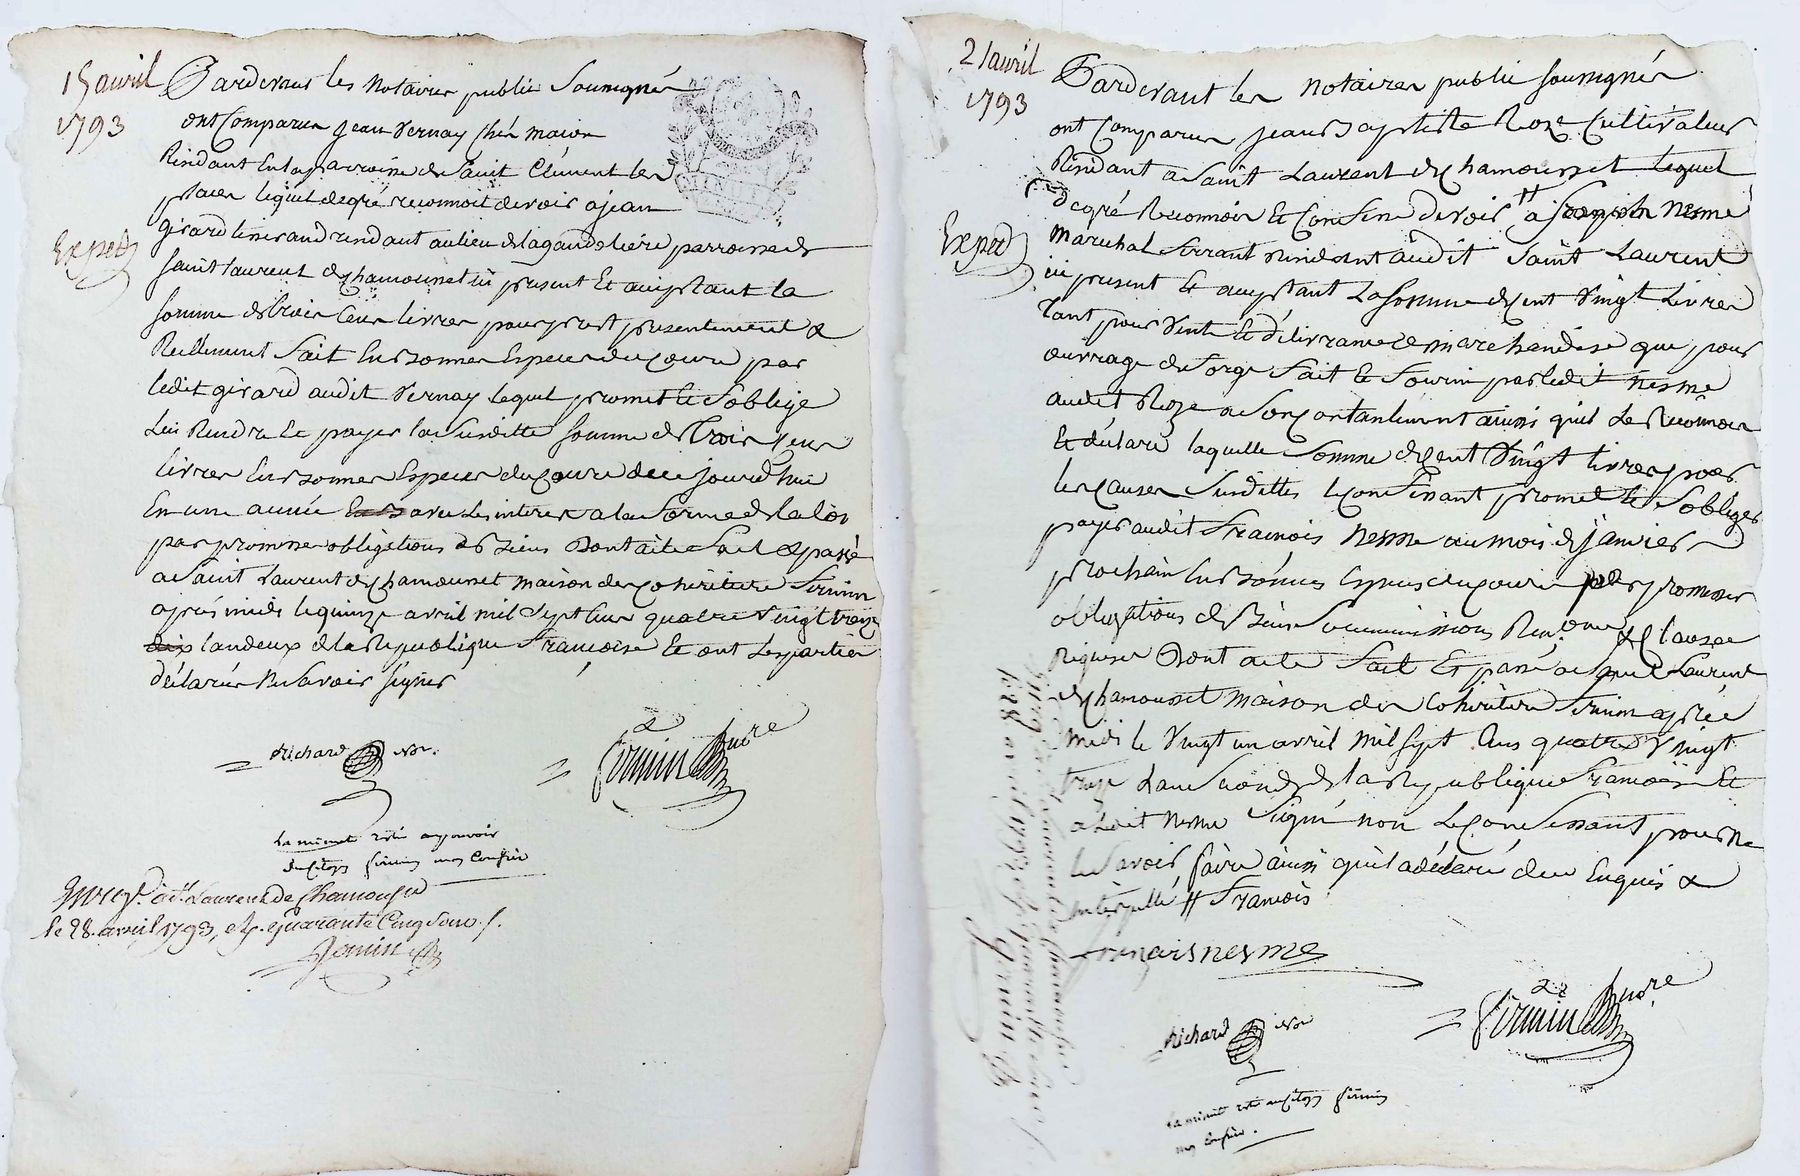 15 avril
1793
Expedé
Pardevant les Notaires public Soussignés
ont Comparu Jean Vernay Chés maion
Résidant en la parroisse de Saint Clément les
places lequel degré reconnoit devoir a jean
girard tisserand résidant au lieu de parroisse de
saint laurent de chamousset ici présent et acceptant la
somme de trois Cens livres pour prest presentement &
Reellement fait En bonnes Especes du Cours par
ledit girard audit Vernay lequel promet et S'oblige
Lui Rendre et payer la Susditte somme de Trois Cens
livres En bonnes Especes du Cours de ce jourd'hui
En une année avec les interets a la forme de la loi
par promesse obligations de Biens Dont acte fait & passé
a Saint Laurent de chamousset maison des cohéritiers firmin
après midi le quinze avril mil Sept Cens quatre Vingt treize
dix landeux de la République françoise Et ont les parties
déclarés ne Savoir signer
Richard nore.
firmin Nore
La minute resté au pouvoir
du Citoyen firmin mon Confrère
Enreg. à St. Laurent de Chamousset
le 28. avril 1793, et. quarante Cinq sous.
Janin
21 avril
1793
Expedé
Pardevant les Notaires public soussignés
ont Comparu jean Baptiste Roze Cultivateur
Résidant a Saint Laurent de chamousset Lequel
degré Reconnoit Et Confesse devoir # a Joseph Nesme
marechal ferrant résidant audit Saint Laurent
ici présent Et acceptant La Somme de cent Vingt Livres
Tant pour Vente Et délivrance de marchandise que pour
ouvrage de forge fait Et fourni par ledit Nesme
audit Roze a son contantement ainsi qu'il Le Reconnoit
Et déclare laquelle Somme de Cent Vingt livres pour
les Causes Susdittes le confessant promet Et S'obliger
payer audit francois Nesme au mois de janvier
prochain En bonnes Especes du cours par promesse
obligations de Biens Soummissions Renon. & Clauses
Requises Dont acte fait Et passé a Saint Laurent
de chamousset maison des Cohéritiers firmin après
midi le Vingt un avril mil Sept Cens quatre Vingt
treize Lan Second de la République francoise Et
a Ledit Nesme Signé non Le confessant pour ne
le Savoir faire ainsi qu'il a déclaré de ce Enquis &
interpellé # francois
francois nesme
Richard nore
firmin Nore
La minute resté au Citoyen firmin
mon Confrère.